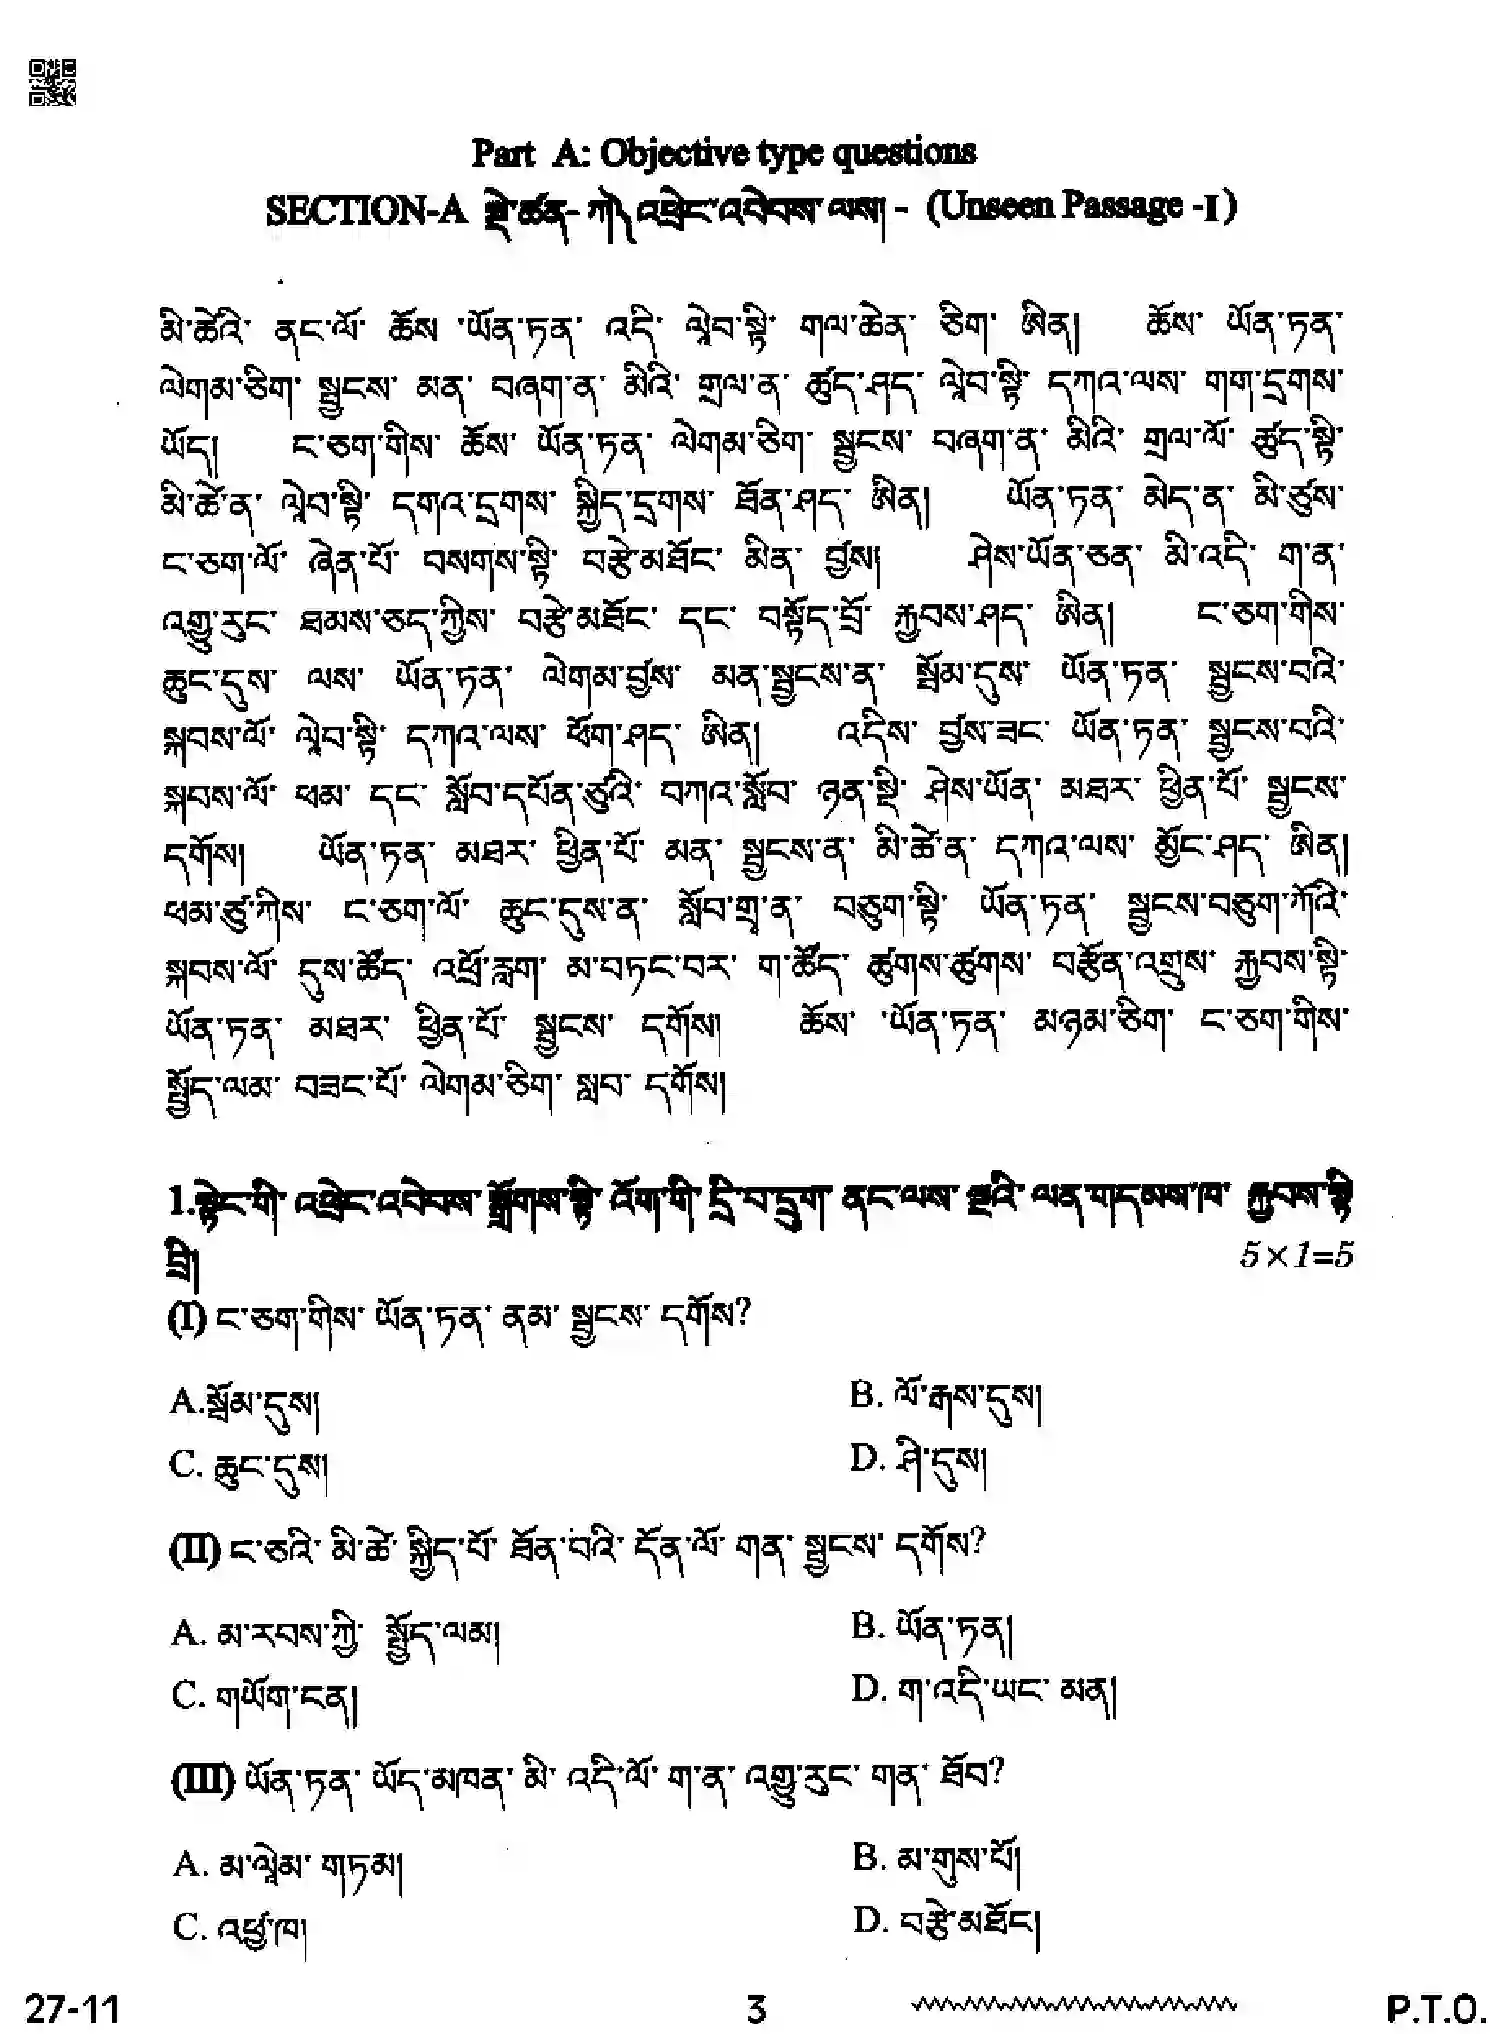 Part A: Objective type questions
SECTION-A སྡེ་ཚན- ཀ༽ འཕྲེང་འབེབས་ལས། - (Unseen Passage -I)
མི་ཚེའི་ ནང་ལོ་ ཆོས་ ཡོན་ཏན་ འདི་ ལྷེབ་སྟི་ གལ་ཆེན་ ཅིག་ ཨིན། ཆོས་ ཡོན་ཏན་
ལེགམ་ཅིག་ སྦྱངས་ མན་ བཞག་ན་ མིའི་ གྲལ་ན་ ཚུད་ཤད་ ལྷེབ་སྟི་ དཀའ་ལས་ གག་དྲགས་
ཡོད། ང་ཅག་གིས་ ཆོས་ ཡོན་ཏན་ ལེགམ་ཅིག་ སྦྱངས་ བཞག་ན་ མིའི་ གྲལ་ལོ་ ཚུད་སྟི་
མི་ཚེ་ན་ ལྷེབ་སྟི་ དགའ་དྲགས་ སྐྱིད་དྲགས་ ཐོན་ཤད་ ཨིན། ཡོན་ཏན་ མེད་ན་ མི་ཙུས་
ང་ཅག་ལོ་ ཞེན་པོ་ བསགས་སྟི་ བརྩེ་མཐོང་ མིན་ བྱས། ཤེས་ཡོན་ཅན་ མི་འདི་ ག་ན་
འགྱུ་རུང་ ཐམས་ཅད་ཀྱིས་ བརྩེ་མཐོང་ དང་ བསྟོད་བྲོ་ རྐྱབས་ཤད་ ཨིན། ང་ཅག་གིས་
ཆུང་དུས་ ལས་ ཡོན་ཏན་ ལེགམ་བྱས་ མན་སྦྱངས་ན་ སྦོམ་དུས་ ཡོན་ཏན་ སྦྱངས་བའི་
སྐབས་ལོ་ ལྷེབ་སྟི་ དཀའ་ལས་ ཕོག་ཤད་ ཨིན། འདིས་ བྱས་ཟང་ ཡོན་ཏན་ སྦྱངས་བའི་
སྐབས་ལོ་ ཕམ་ དང་ སློབ་དཔོན་ཙུའི་ བཀའ་སློབ་ ཉན་སྡི་ ཤེས་ཡོན་ མཐར་ ཕྱིན་པོ་ སྦྱངས་
དགོས། ཡོན་ཏན་ མཐར་ ཕྱིན་པོ་ མན་ སྦྱངས་ན་ མི་ཚེ་ན་ དཀའ་ལས་ མྱོང་ཤད་ ཨིན།
ཕམ་ཙུ་ཀིས་ ང་ཅག་ལོ་ ཆུང་དུས་ན་ སློབ་གྲྭ་ན་ བཅུག་སྟི་ ཡོན་ཏན་ སྦྱངས་བཅུག་ཀོའི་
སྐབས་ལོ་ དུས་ཚོད་ འཕྲོ་རླག་ མ་བཏང་བར་ ག་ཚོད་ ཚུགས་ཚུགས་ བརྩོན་འགྲུས་ རྐྱབས་སྟི་
ཡོན་ཏན་ མཐར་ ཕྱིན་པོ་ སྦྱངས་ དགོས། ཆོས་ ཡོན་ཏན་ མཉམ་ཅིག་ ང་ཅག་གིས་
སྤྱོད་ལམ་ བཟང་པོ་ ལེགམ་ཅིག་ སླབ་ དགོས།
1.སྟེང་གི་ འཕྲེང་འབེབས་ སྒྲོགས་སྟི་ འོག་གི་ དྲི་བ་དྲུག་ ནང་ལས་ ལྔའི་ ལན་གདམས་ཁ་ རྐྱབས་སྟི་
བྲི། 5×1=5
(I) ང་ཅག་གིས་ ཡོན་ཏན་ ནམ་ སྦྱངས་ དགོས?
A.སྦོམ་དུས། B. ལོ་རྒས་དུས།
C. ཆུང་དུས། D. ཤི་དུས།
(II) ང་ཅའི་ མི་ཚེ་ སྐྱིད་པོ་ ཐོན་བའི་ དོན་ལོ་ གན་ སྦྱངས་ དགོས?
A. མ་རབས་ཀྱི་ སྤྱོད་ལམ། B. ཡོན་ཏན།
C. གཡོག་ངན། D. ག་འདི་ཡང་ མན།
(III) ཡོན་ཏན་ ཡོད་མཁན་ མི་ འདི་ལོ་ ག་ན་ འགྱུ་རུང་ གན་ ཐོབ?
A. མ་ལྷེམ་ གཏམ། B. མ་གུས་པོ།
C. འཕྱ་ཁ། D. བརྩེ་མཐོང།
27-11 3 P.T.O.